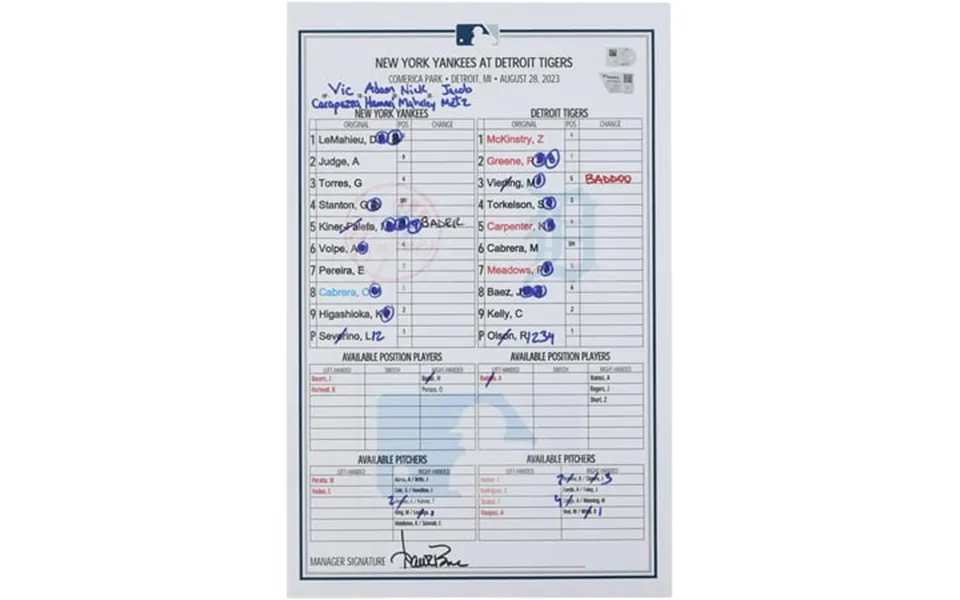 NEW YORK YANKEES AT DETROIT TIGERS
COMERICA PARK • DETROIT, MI • AUGUST 28, 2023
Vic Adam Nick Jacob
Carapazza Hamari Mahrley Metz
NEW YORK YANKEES
ORIGINAL POS CHANGE
1 LeMahieu, D
2 Judge, A
3 Torres, G 4
4 Stanton, G DH
5 Kiner-Falefa, BADER
6 Volpe, A 6
7 Pereira, E 7
8 Cabrera, O
9 Higashioka, K 2
P Severino, L 12 1
DETROIT TIGERS
ORIGINAL POS CHANGE
1 McKinstry, Z
2 Greene, R
3 Vierling, M 5 BADDOO
4 Torkelson, S 3
5 Carpenter, K 9
6 Cabrera, M DH
7 Meadows, P
8 Baez, J 6
9 Kelly, C 2
P Olson, R 1234 1
AVAILABLE POSITION PLAYERS
LEFT-HANDED SWITCH RIGHT-HANDED
Bauers, J Bader, H
Peraza, O
AVAILABLE POSITION PLAYERS
LEFT-HANDED SWITCH RIGHT-HANDED
Baddoo, A Ibanez, A
Rogers, J
Short, Z
AVAILABLE PITCHERS
LEFT-HANDED RIGHT-HANDED
Peralta, W
Cole, G / Hamilton, I
2
King, M /
Middleton, K / Schmidt, C
AVAILABLE PITCHERS
LEFT-HANDED RIGHT-HANDED
2 3
Rodriguez, E
4
Vasquez, A 1
MANAGER SIGNATURE